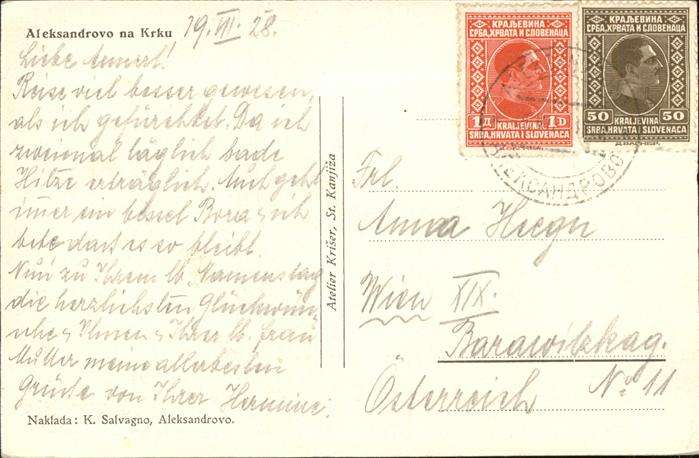 Aleksandrovo na Krku 19. VII. 28.
Liebe Annerl!
Reise viel besser gewesen,
als ich gefürchtet. Da ich
zweimal täglich bade
Hitze erträglich. Auch geht
imer ein bissel Bora & ich
bete dass es so bleibt.
Nun zu Ihrem lb. Namenstag
die herzlichsten Glückwün-
sche & Ihnen & Ihrer lb. Frau
Mutter meine allerbesten
Grüsse von Ihrer Hermine.
Naklada: K. Salvagno, Aleksandrovo.
Atelier Krišer, St. Kanjiža
КРАЉЕВИНА
СРБА, ХРВАТА И СЛОВЕНАЦА
1Д 1D
KRALJEVINA
SRBA, HRVATA I SLOVENACA
КРАЉЕВИНА
СРБА, ХРВАТА И СЛОВЕНАЦА
50 50
KRALJEVINA
SRBA, HRVATA I SLOVENACA
АЛЕКСАНДРОВО
Frl.
Anna Hegn
Wien XIX
Barawitzkag.
Österreich No 11